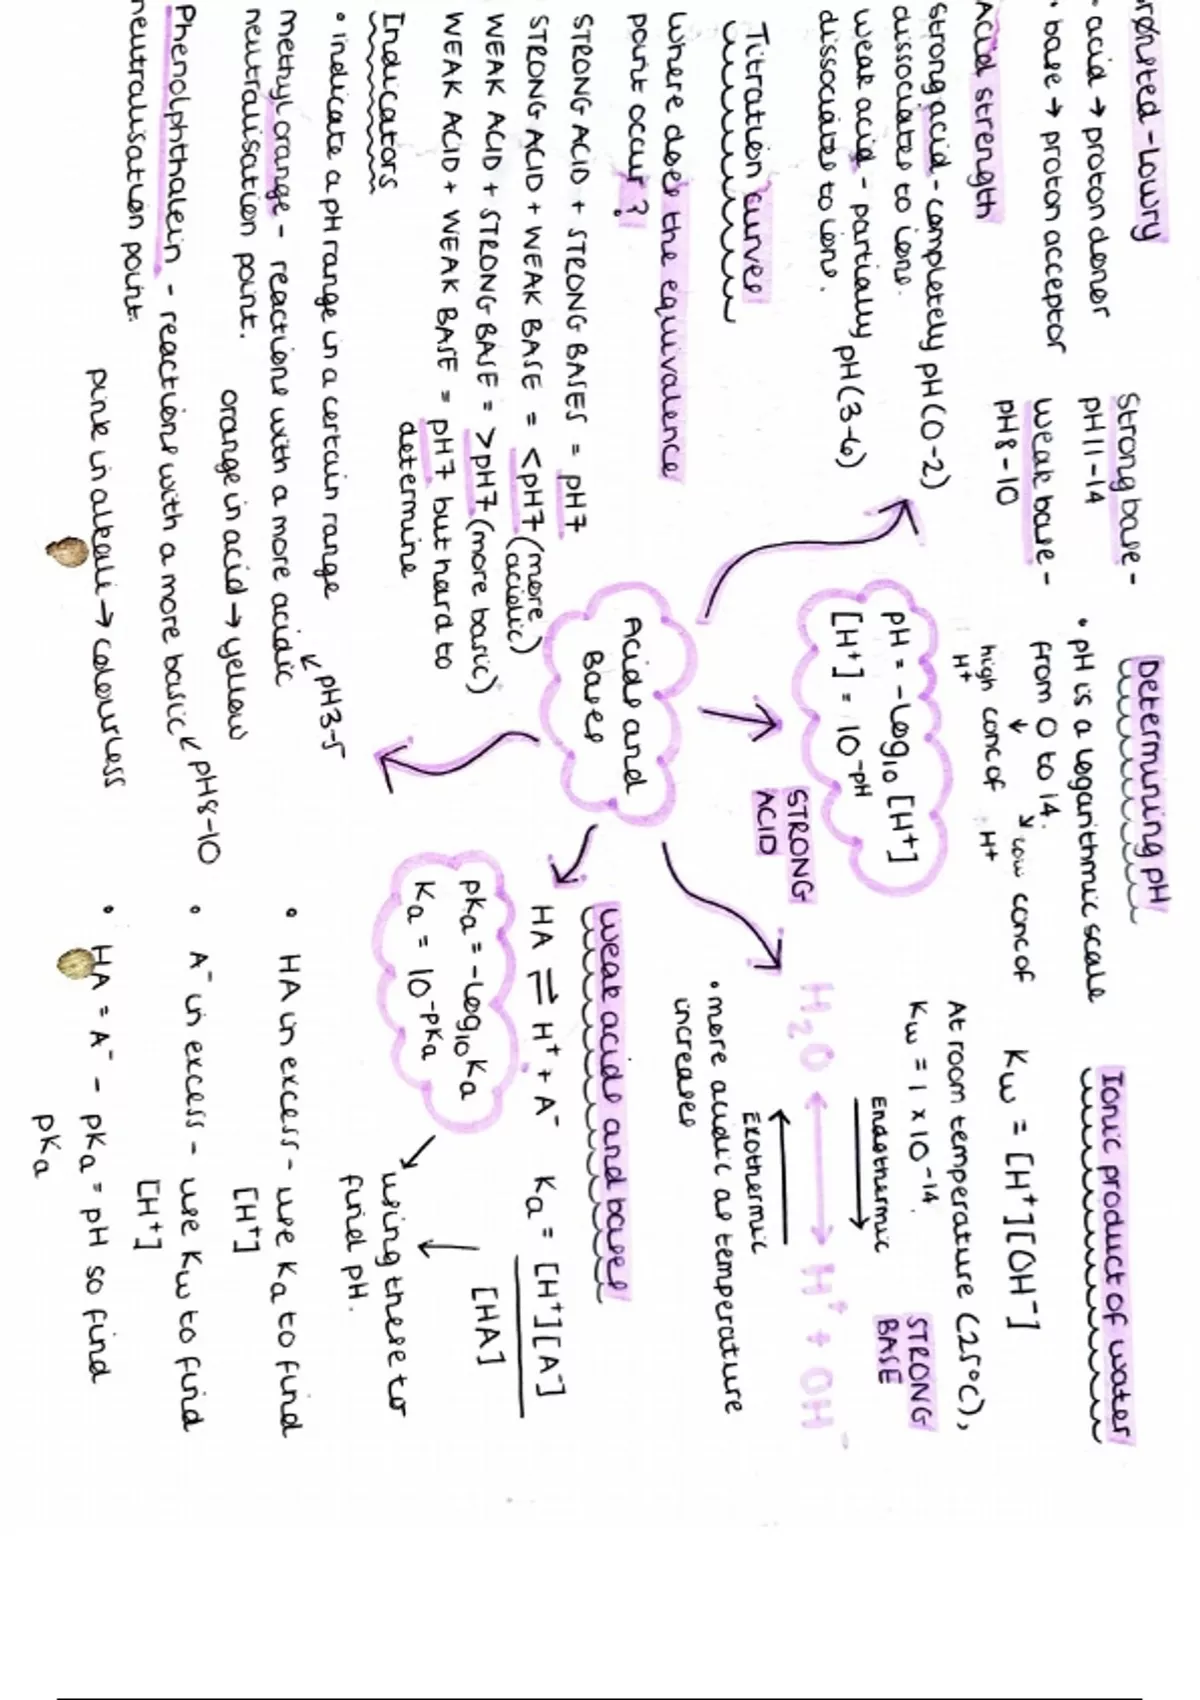 rønsted-Lowry
- acid → proton donor
• base → proton acceptor
Strong base -
pH 11-14
weak base -
pH 8-10
Acid strength
Strong acid - completely pH (0-2)
dissociates to ions.
weak acid - partially pH (3-6)
dissociates to ions.
Titration curves
where does the equivalence
point occur?
STRONG ACID + STRONG BASES = pH7
STRONG ACID + WEAK BASE = <pH7 (more acidic)
WEAK ACID + STRONG BASE = >pH7 (more basic)
WEAK ACID + WEAK BASE = pH7 but hard to
determine
Indicators
• indicate a pH range in a certain range
methyl orange - reactions with a more acidic
↖ pH3-5
neutralisation point.
orange in acid → yellow
Phenolphthalein - reactions with a more basic ↖ pH8-10
neutralisation point.
pink in alkali → colourless
Acids and
Bases
Determining pH
• pH is a logarithmic scale
from 0 to 14.
high conc of
H⁺
low conc of
H⁺
pH = -log₁₀ [H⁺]
[H⁺] = 10⁻ᵖᴴ
STRONG
ACID
Ionic product of water
Kw = [H⁺][OH⁻]
At room temperature (25°C),
Kw = 1 x 10⁻¹⁴.
STRONG
BASE
Endothermic
H₂O ⟷ H⁺ + OH⁻
Exothermic
• more acidic as temperature
increases
weak acids and bases
HA ⇌ H⁺ + A⁻
Ka = [H⁺][A⁻]
[HA]
pKa = -log₁₀ Ka
Ka = 10⁻ᵖᴷᵃ
using these to
find pH.
• HA in excess - use Ka to find
[H⁺]
• A⁻ in excess - use Kw to find
[H⁺]
• HA = A⁻ - pKa = pH so find
pKa